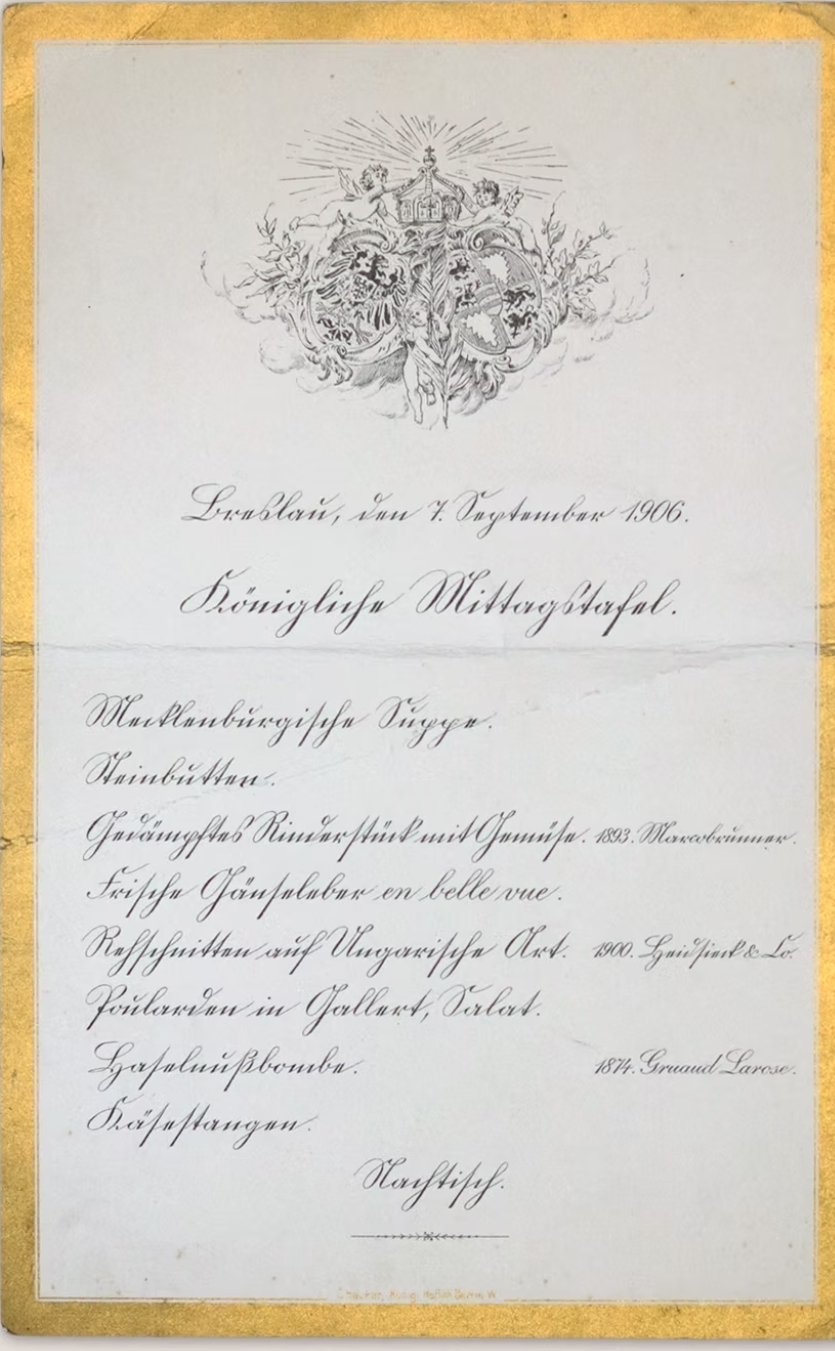 Breslau, den 7. September 1906.
Königliche Mittagstafel.
Mecklenburgische Suppe.
Steinbutten.
Gedämpftes Rinderstück mit Gemüse. 1893. Marcobrunner.
Frische Gänseleber en belle vue.
Rehschnitten auf Ungarische Art. 1900. Heidsieck & Co.
Poularden in Gallert, Salat.
Haselnußbombe. 1874. Gruaud Larose.
Käsestangen.
Nachtisch.